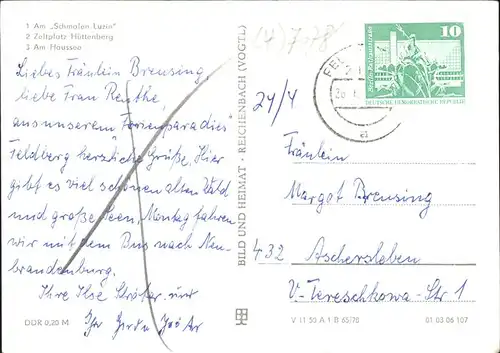 1 Am „Schmalen Luzin"
2 Zeltplatz Hüttenberg
3 Am Haussee
Liebes Fräulein Breusing,
liebe Frau
aus unserem „Ferienparadies"
Feldberg herzliche Grüße. Hier
gibt es viel schönen alten Wald
und große Seen. Montag fahren
wir mit dem Bus nach Neu-
brandenburg.
Ihre Ilse und
Ihr
DDR 0,20 M
BILD UND HEIMAT · REICHENBACH (VOGTL)
24/4
10
DEUTSCHE DEMOKRATISCHE REPUBLIK
Fräulein
Margot Breusing
432 Aschersleben
V-Tereschkowa-Str 1
V 11 50 A 1 B 65/70
01 03 06 107